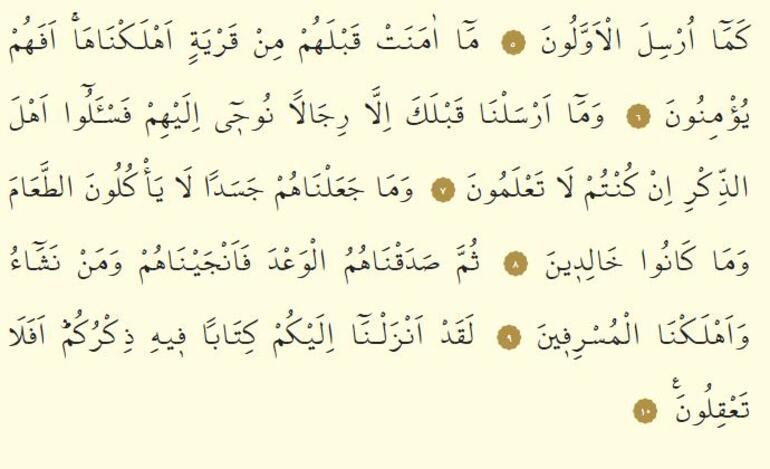 كَمَٓا اُرْسِلَ الْاَوَّلُونَ ٥ مَٓا اٰمَنَتْ قَبْلَهُمْ مِنْ قَرْيَةٍ اَهْلَكْنَاهَاۚ اَفَهُمْ
يُؤْمِنُونَ ٦ وَمَٓا اَرْسَلْنَا قَبْلَكَ اِلَّا رِجَالًا نُوح۪ٓي اِلَيْهِمْ فَسْـَٔلُٓوا اَهْلَ
الذِّكْرِ اِنْ كُنْتُمْ لَا تَعْلَمُونَ ٧ وَمَا جَعَلْنَاهُمْ جَسَدًا لَا يَأْكُلُونَ الطَّعَامَ
وَمَا كَانُوا خَالِد۪ينَ ٨ ثُمَّ صَدَقْنَاهُمُ الْوَعْدَ فَاَنْجَيْنَاهُمْ وَمَنْ نَشَٓاءُ
وَاَهْلَكْنَا الْمُسْرِف۪ينَ ٩ لَقَدْ اَنْزَلْنَٓا اِلَيْكُمْ كِتَابًا ف۪يهِ ذِكْرُكُمْۜ اَفَلَا
تَعْقِلُونَ۟ ١٠